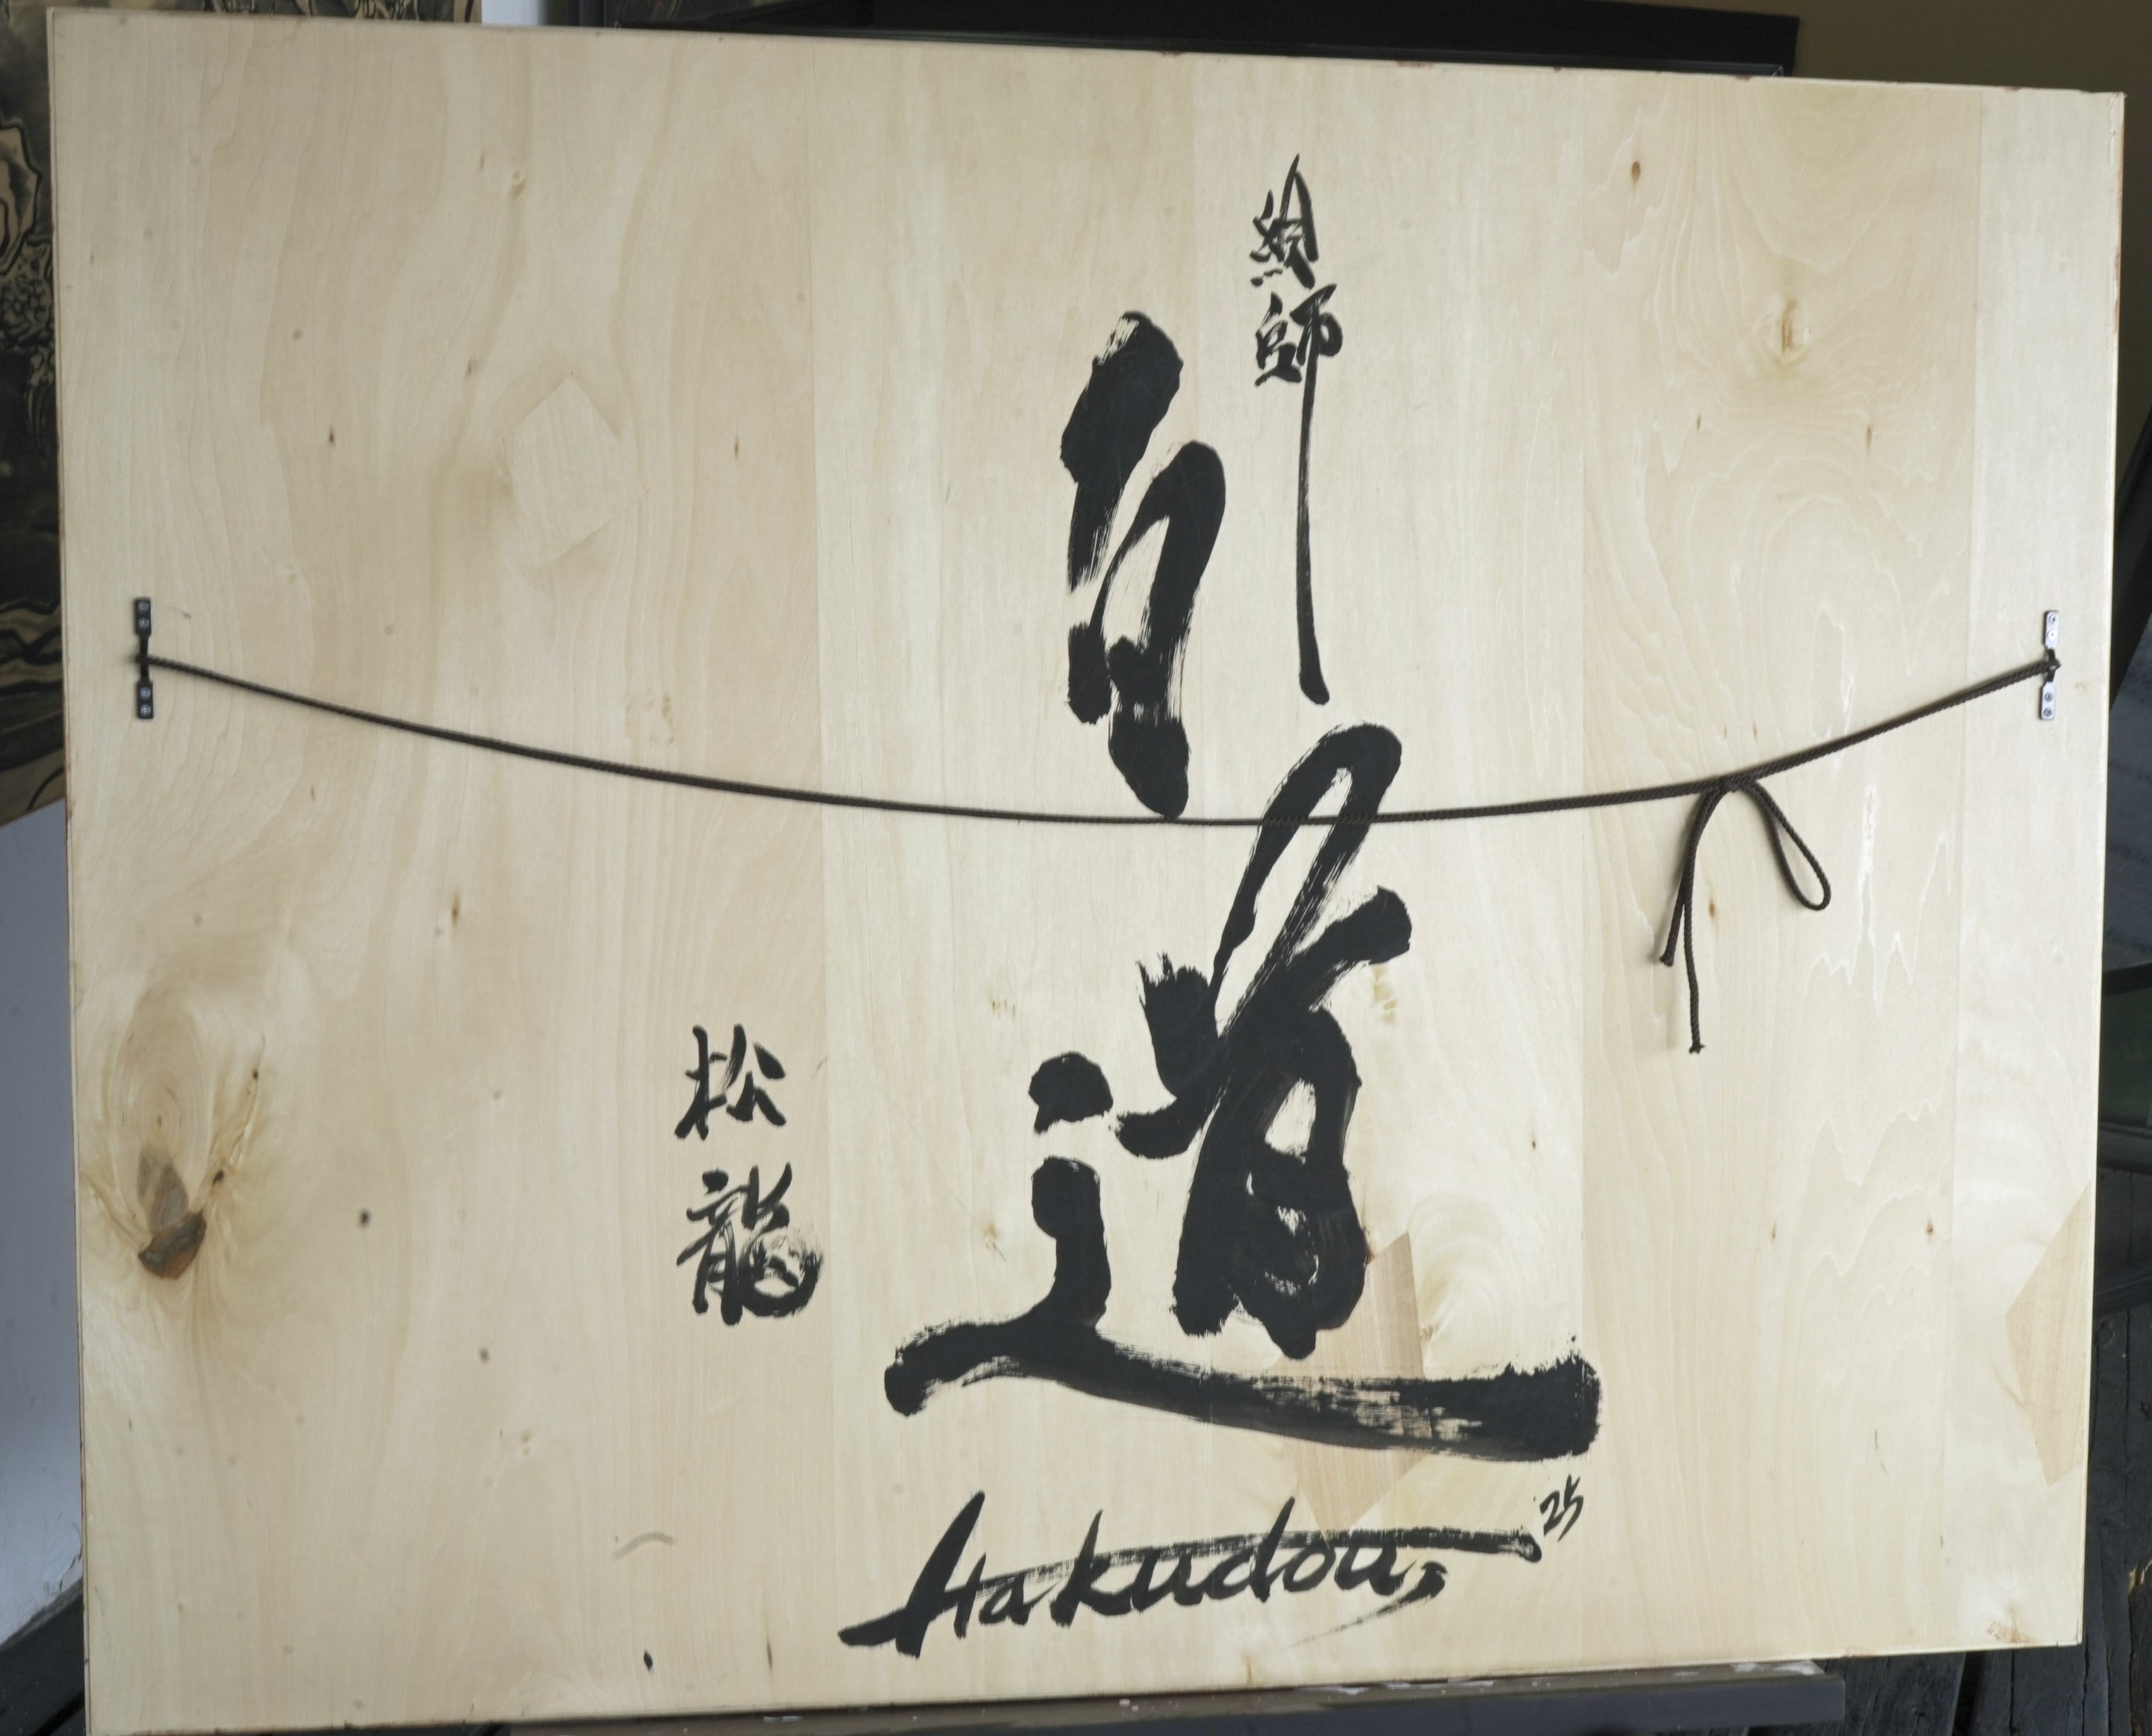 絵師
白道
松龍
Hakudou,
'25